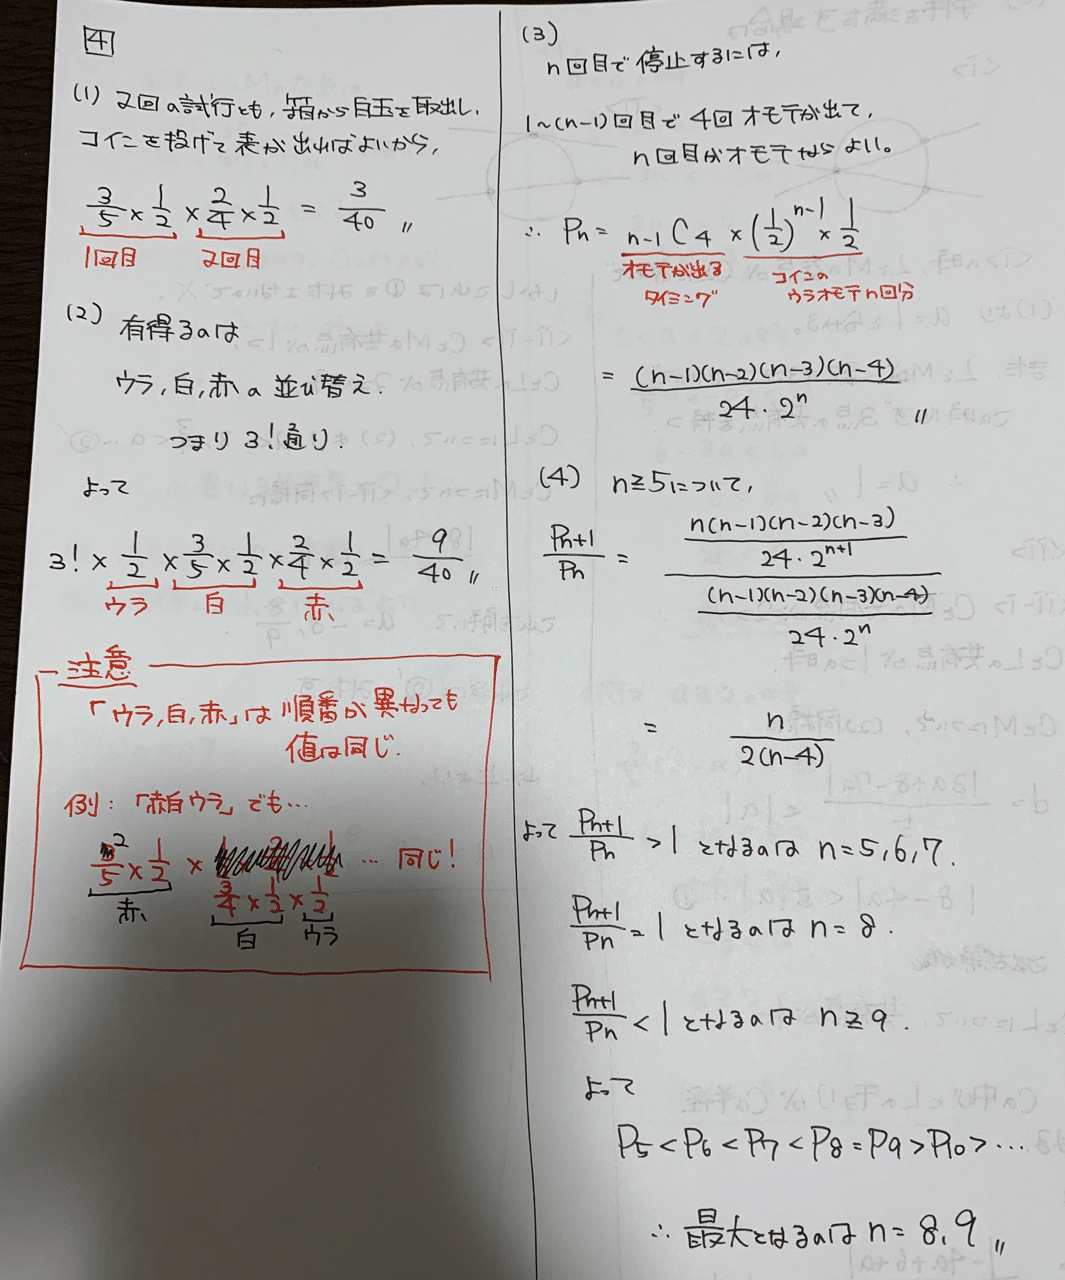 4
(1) 2回の試行とも,箱から白玉を取出し,
コインを投げて表が出ればよいから,
3/5 × 1/2 × 2/4 × 1/2 = 3/40 〃
1回目 2回目
(2) 有得るのは
ウラ,白,赤の並び替え.
つまり 3!通り.
よって
3! × 1/2 × 3/5 × 1/2 × 2/4 × 1/2 = 9/40 〃
ウラ 白 赤
注意
「ウラ,白,赤」は順番が異なっても
値は同じ.
例:「赤白ウラ」でも…
2/5 × 1/2 × 3/4 × 1/2 × 1/2 … 同じ!
赤 白 ウラ
(3)
n回目で停止するには,
1~(n-1)回目で4回オモテが出て,
n回目がオモテならよい。
∴ Pn = n-1C4 × (1/2)^n-1 × 1/2
オモテが出る
タイミング
コインの
ウラオモテn回分
= (n-1)(n-2)(n-3)(n-4) / 24・2^n 〃
(4) n≧5について,
Pn+1/Pn = n(n-1)(n-2)(n-3)/24・2^n+1 / (n-1)(n-2)(n-3)(n-4)/24・2^n
= n/2(n-4)
よって Pn+1/Pn > 1 となるのは n=5,6,7.
Pn+1/Pn = 1 となるのは n=8.
Pn+1/Pn < 1 となるのは n≧9.
よって
P5 < P6 < P7 < P8 = P9 > P10 > …
∴ 最大となるのは n=8,9 〃